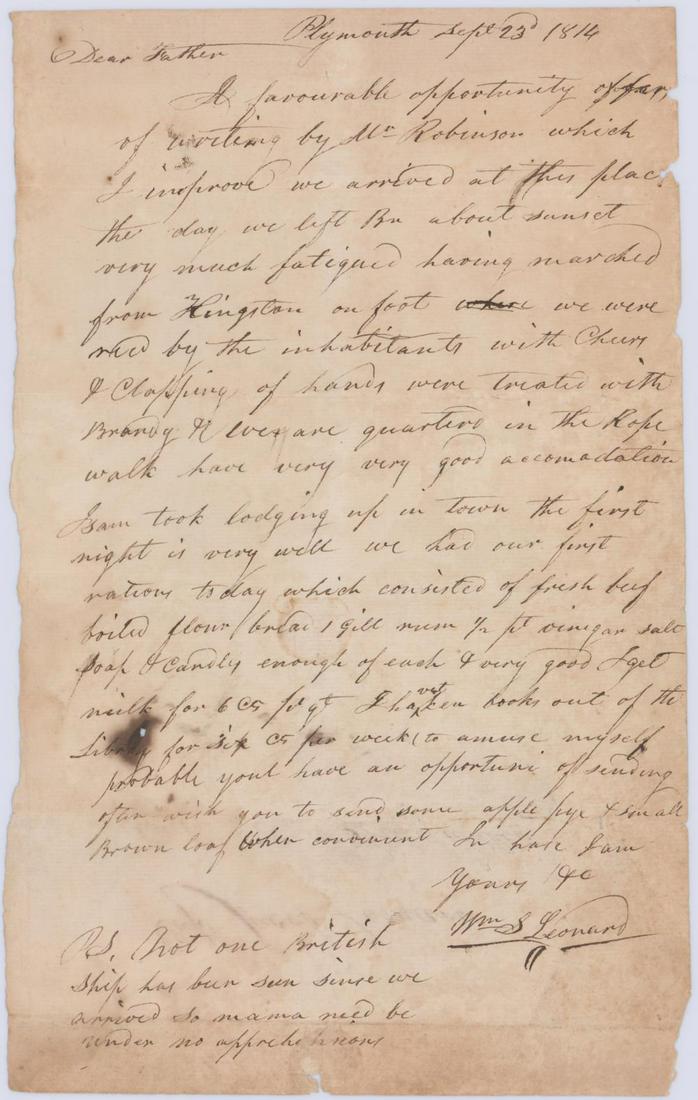 Plymouth Sept 23d 1814
Dear Father
A favourable opportunity offers
of writing by Mr Robinson which
I improve we arrived at this place
the day we left Br about sunset
very much fatigued having marched
from Kingston on foot where we were
recd by the inhabitants with Cheers
& Clapping of hands were treated with
Brandy & we are quarterd in the Rope
walk have very very good accomodation
Isam took lodging up in town the first
night is very well we had our first
rations today which consisted of fresh beef
boiled flour bread 1 gill rum 1/2 pt vinegar salt
soap & candles enough of each & very good I get
milk for 6 cts pr qt I have taken books out of the
Library for six cts per week to amuse myself
probable youl have an opportuni of sending
often wish you to send some apple pye & small
Brown loaf when convinient In hase I am
Yours &c
Wm S Leonard
PS, Not one British
ship has been seen sinse we
arrived so mama need be
under no apprehensions